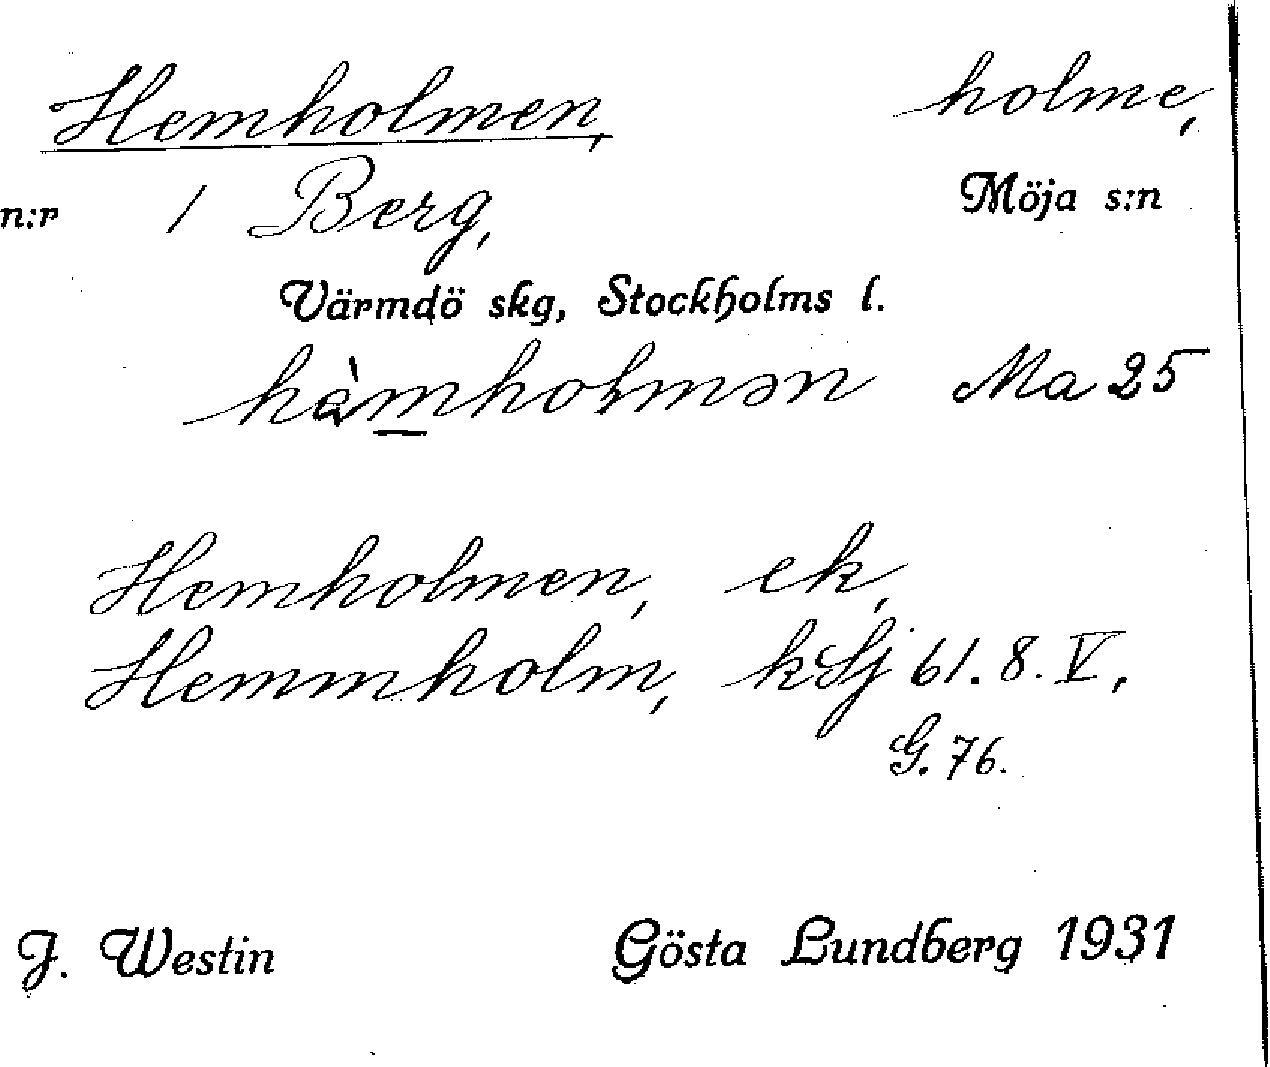 Hemholmen, holme,
n:r 1 Berg, Möja s:n
Värmdö skg, Stockholms l.
hàmholmən Ma 25
Hemholmen, ek,
Hemmholm, kSj 61. 8. V,
G. 76.
J. Westin Gösta Lundberg 1931